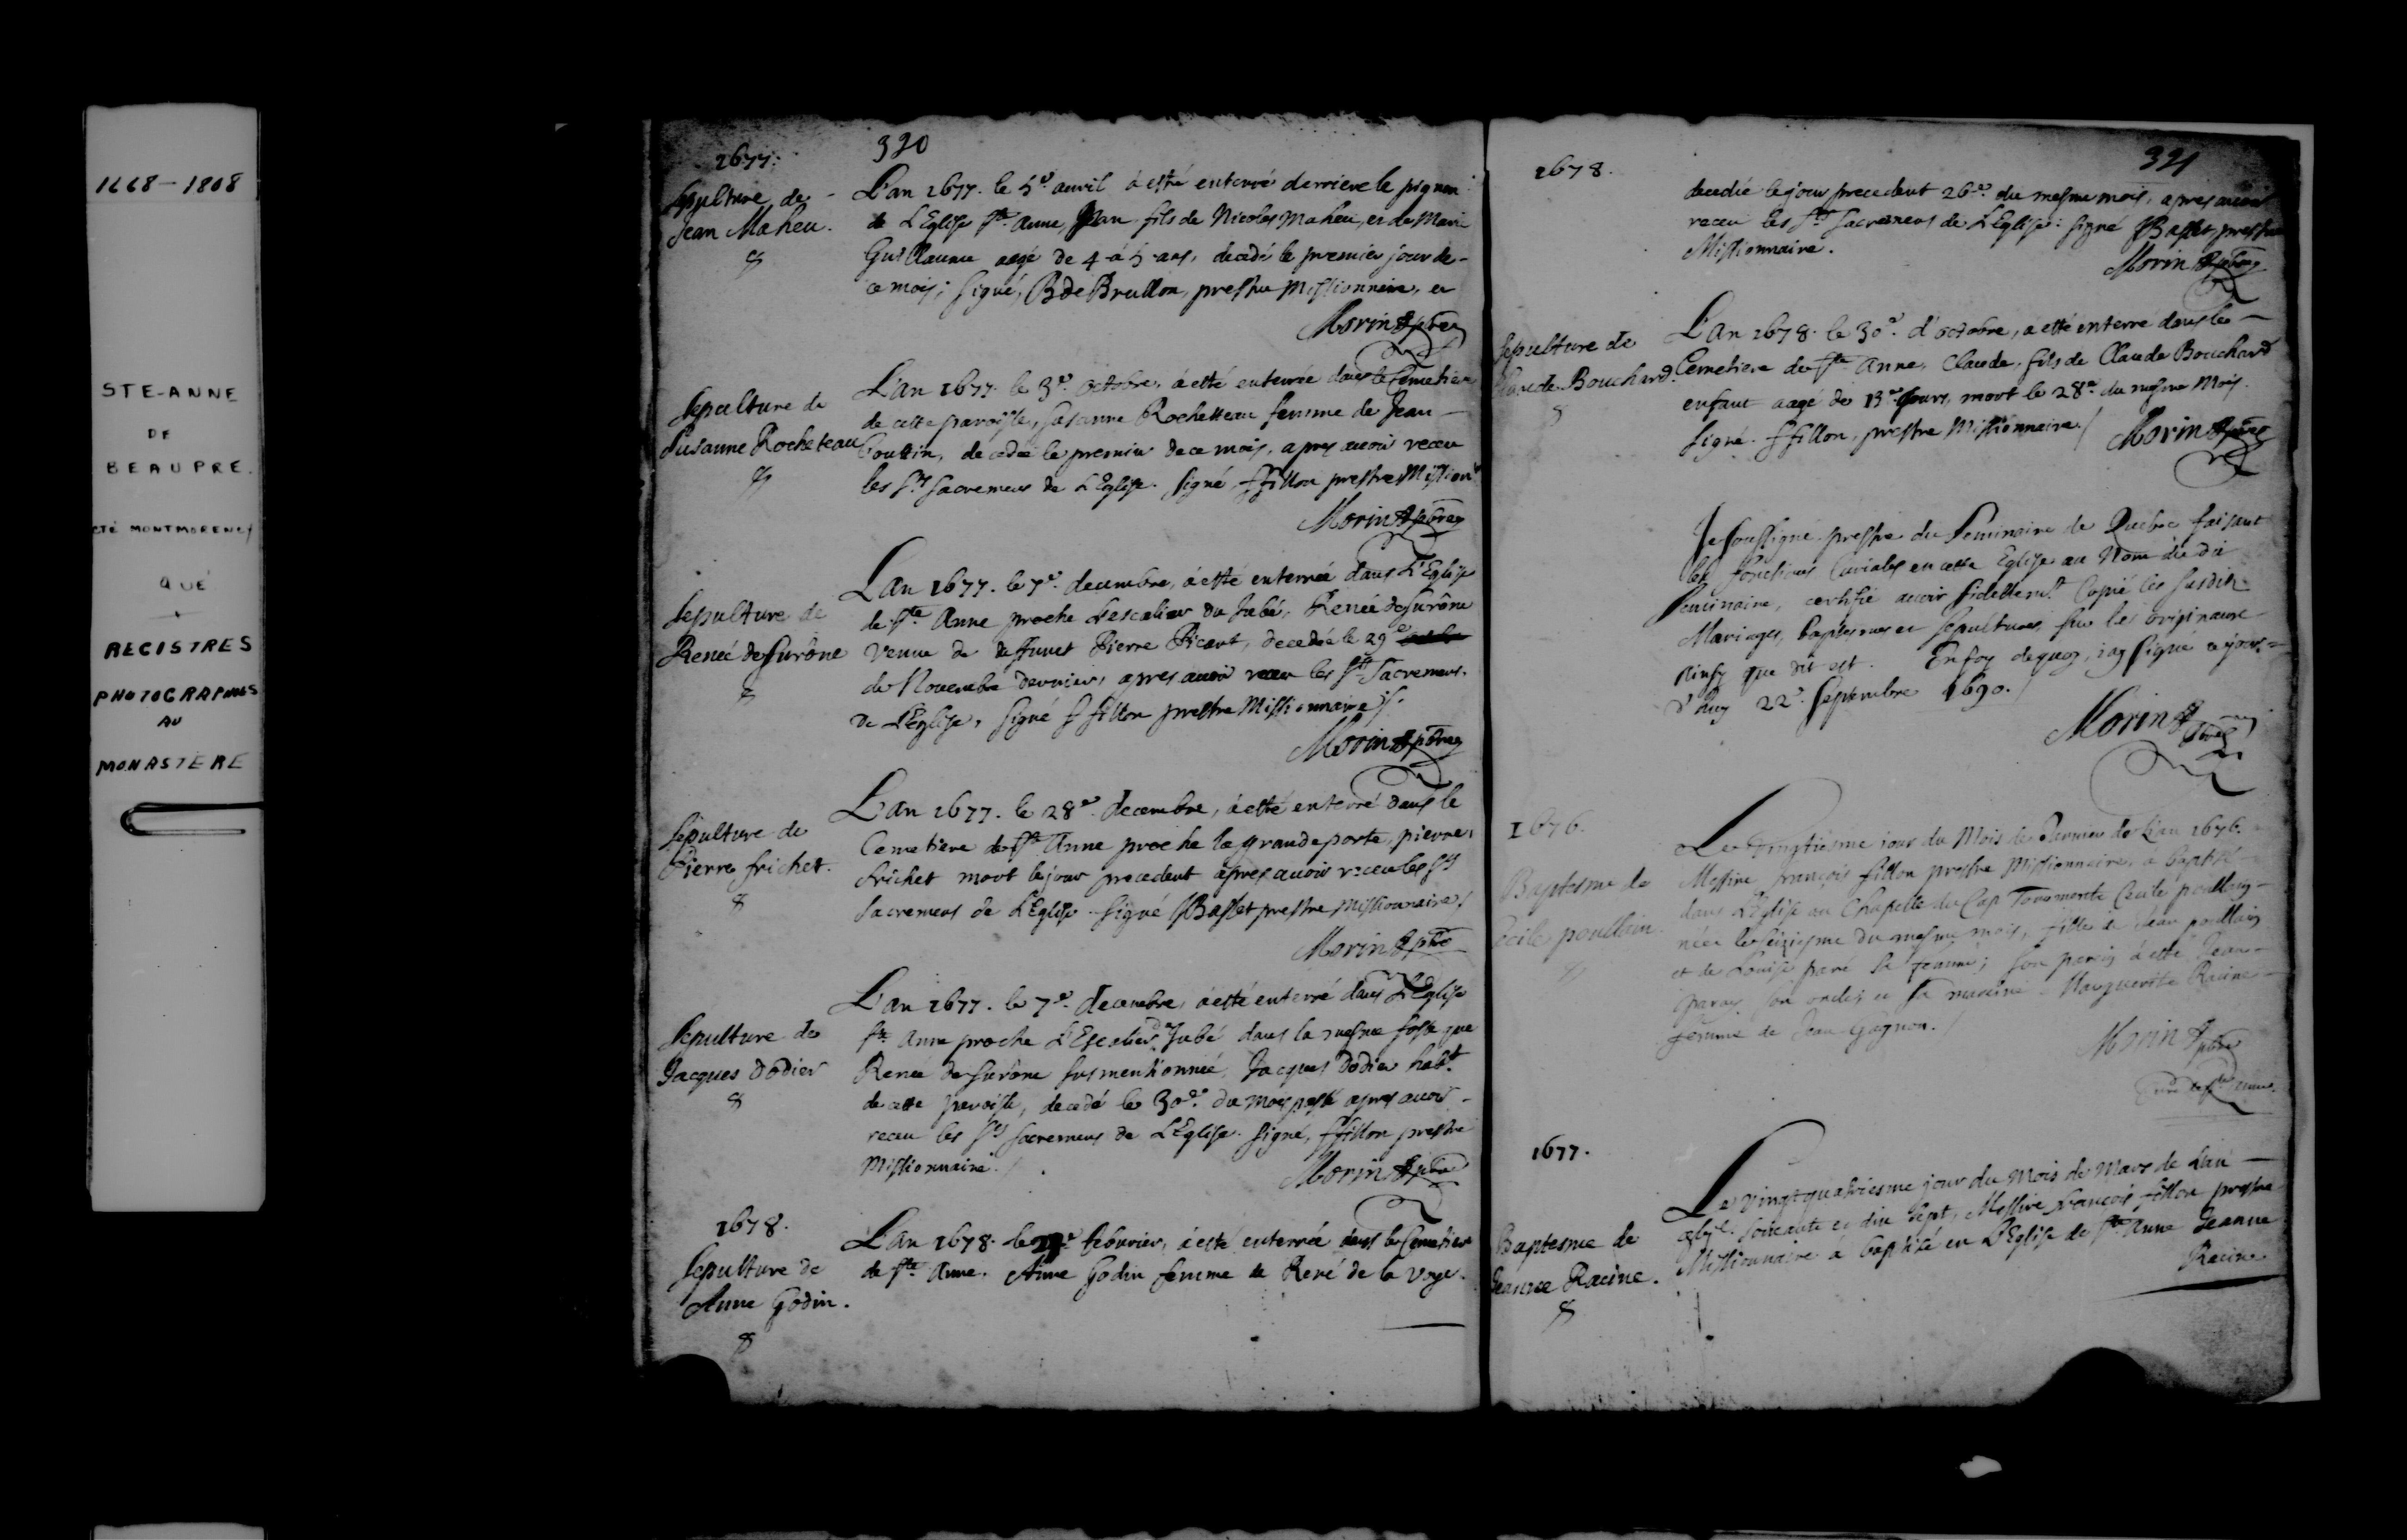 1668-1808
STE-ANNE
DE
BEAUPRE.
CTÉ MONTMORENCY
QUÉ
REGISTRES
PHOTOGRAPHIÉS
AU
MONASTERE
320
1677.
Sepulture de
Jean Maheu.
L'an 1677. le 5e. auril à esté enterré derriere le pignon
de L'Eglise Ste. Anne, Jean fils de Nicolas Maheu, et de Marie
Guillaume aagé de 4 à 5 ans, decedé le premier jour de
ce mois; signé, B de Brullon, prestre Missionnaire, et
Morin ptre
Sepulture de
Susanne Rocheteau
L'an 1677. le 3e. octobre, à esté enterrée dans le Cemetiere
de cette paroisse, Susanne Rochetteau femme de Jean
Couttin, decedée le premier de ce mois, apres auoir receu
les Sts sacremens de L'Eglise. signé, ffillon prestre Mission.re
Morin ptre
Sepulture de
Renée de Surône
L'an 1677. le 7e. decembre, à esté enterrée dans L'Eglise
de Ste. Anne proche L'escalier du Jubé, Renée de Surône
Veuve de deffunct Pierre Picart, decedée le 29e
de Nouembre dernier, apres auoir receu les Sts Sacremens
de L'Eglise, signé f fillon prestre Missionnaire./.
Morin ptre
Sepulture de
Pierre frichet.
L'an 1677. le 28e. decembre, à esté enterré dans le
Cemetiere de Ste Anne proche la grande porte, pierre
frichet mort le jour precedent apres auoir receu les Sts
Sacremens de L'Eglise. Signé Basset prestre Missionnaire/
Morin ptre
Sepulture de
Jacques Dodier
L'an 1677. le 7e. decembre, à esté enterré dans L'Eglise
Ste. Anne proche L'Escalier du Jubé dans la mesme fosse que
Renée de Surône susmentionnée, Jacques Dodier habt.
de cette paroisse, decedé le 30e. du mois passé apres auoir
receu les Sts sacremens de L'Eglise. signé, ffillon prestre
Missionnaire./.
Morin ptre
1678.
Sepulture de
Anne Godin.
L'an 1678. le 27e feburier, à esté enterrée dans le Cemetiere
de Ste. Anne. Anne Godin femme de René de la Voye.
321
1678.
decedée le jour precedent 26e. du mesme mois, apres auoir
receu les Sts sacremens de L'Eglise: signé Basset prestre
Missionnaire.
Morin ptre
Sepulture de
Claude Bouchard.
L'An 1678. le 30e. d'octobre, à esté enterré dans le
Cemetiere de Ste Anne, Claude, fils de Claude Bouchard
enfant aagé de 13 jours, mort le 28e. du mesme Mois.
signé. f fillon, prestre Missionnaire./
Morin ptre
Je soussigné prestre du Seminaire de Quebec faisant
les fonctions Curiales en cette Eglise au Nom du dit
Seminaire, certifie auoir fidellemt. Copié les susdits
Mariages, baptesmes et sepultures, sur les originaux
Ainsy que dit est. En foy dequoy, i'ay signé ce jour
d'huy 22e. Septembre 1690./
Morin ptre
1676.
Baptesme de
Cecile poullain.
Le Vingtiesme jour du Mois de Januier de L'an 1676.
Messire françois fillon prestre Missionnaire, a baptisé
dans L'Eglise ou Chapelle du Cap Tourmente Cecile poullain
née le seiziesme du mesme mois, fille de Jean poullain
et de Louise paré sa femme; son parein à esté Jean
paray son oncle, et sa mareine Marguerite Racine
femme de Jean Gagnon./
Morin ptre
1677.
Baptesme de
Jeanne Racine.
Le Vingtquatriesme jour du Mois de Mars de L'an
soixante et dix sept, Messire François fillon prestre
Missionnaire à baptisé en L'Eglise de Ste Anne Jeanne
Racine